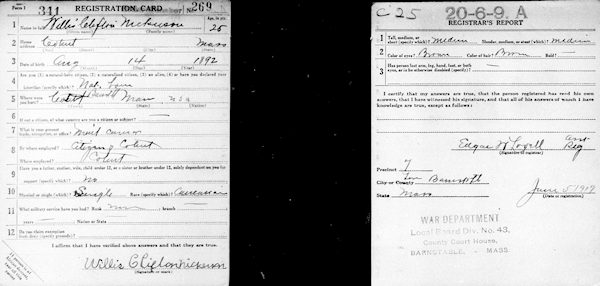 Form 1 341 REGISTRATION CARD No. 269
1 Name in full Willis Clifton Nickerson Age, in yrs. 25
2 Home address Cotuit Mass
3 Date of birth Aug 14 1892
4 Are you (1) a natural-born citizen, (2) a naturalized citizen, (3) an alien, (4) or have you declared your
intention (specify which)?
5 Where were you born? Cotuit Mass USA
6 If not a citizen, of what country are you a citizen or subject?
7 What is your present trade, occupation, or office? Mail
8 By whom employed? Cotuit
Where employed? Cotuit
9 Have you a father, mother, wife, child under 12, or a sister or brother under 12, solely dependent on you for
support (specify which)? No
10 Married or single (which)? Single Race (specify which)? Caucasian
11 What military service have you had? Rank branch
years Nation or State
12 Do you claim exemption from draft (specify grounds)?
I affirm that I have verified above answers and that they are true.
Willis Clifton Nickerson
(Signature or mark)
C 25 20-6-9. A
REGISTRAR'S REPORT
1 Tall, medium, or short (specify which)? Medium Slender, medium, or stout (which)? Medium
2 Color of eyes? Brown Color of hair? Brown Bald?
3 Has person lost arm, leg, hand, foot, or both
eyes, or is he otherwise disabled (specify)?
I certify that my answers are true, that the person registered has read his own
answers, that I have witnessed his signature, and that all of his answers of which I have
knowledge are true, except as follows:
(Signature of registrar)
Precinct 7
City or County Barnstable
State Mass June 5 1917
(Date of registration)
WAR DEPARTMENT
Local Board Div. No. 43,
County Court House,
BARNSTABLE - MASS.